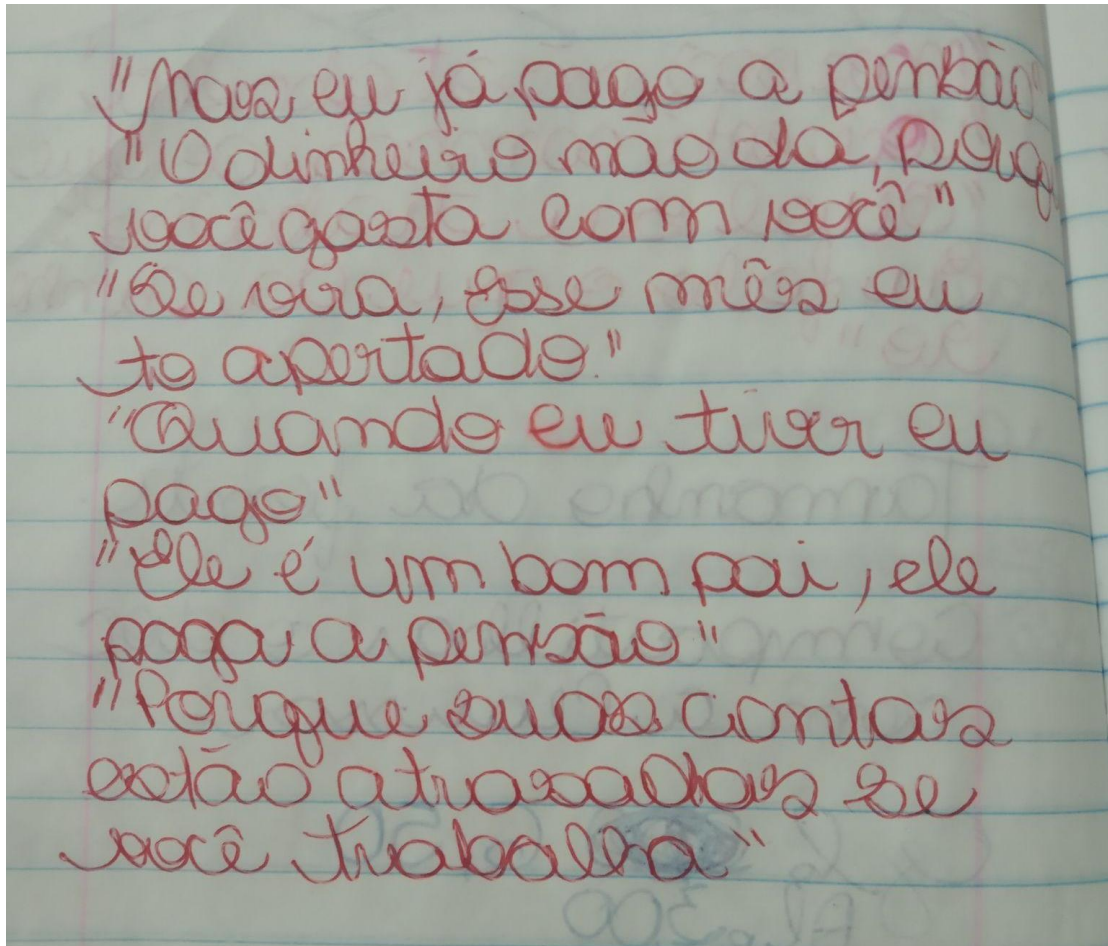 "Mas eu já pago a pensão
"O dinheiro não da, porq
você gasta com você"
"Se vira, esse mês eu
to apertado."
"Quando eu tiver eu
pago"
"Ele é um bom pai, ele
paga a pensão"
"Porque suas contas
estão atrasadas se
você trabalha"